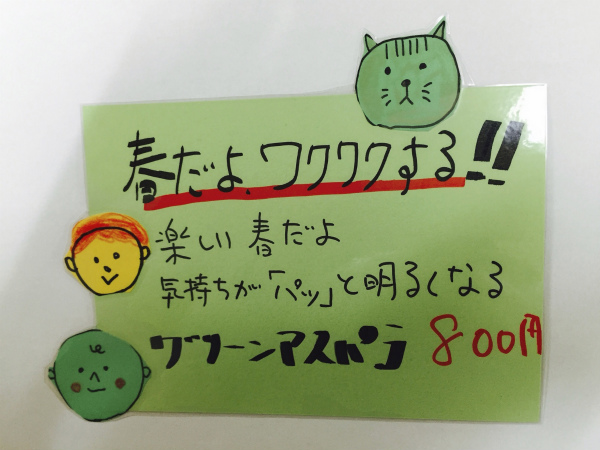 春だよ、ワクワクする!!
楽しい春だよ
気持ちが「パッ」と明るくなる
グリーンアスパラ 800円